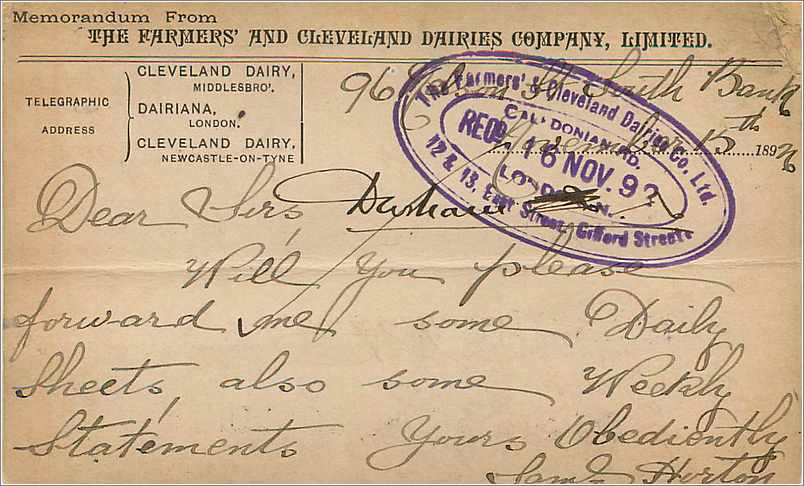 Memorandum From
THE FARMERS' AND CLEVELAND DAIRIES COMPANY, LIMITED.
TELEGRAPHIC
ADDRESS
CLEVELAND DAIRY,
MIDDLESBRO'.
DAIRIANA,
LONDON.
CLEVELAND DAIRY,
NEWCASTLE-ON-TYNE
96 South Bank
November 15th 189
The Farmers' & Cleveland Dairies Co. Ltd.
CALEDONIAN RD.
RECD. 16 NOV. 92
LONDON. N.
12 & 13, East Street, Gifford Street.
Dear Sirs,
Will You please
forward me some Daily
Sheets, also some Weekly
Statements Yours Obediently
Saml Horton